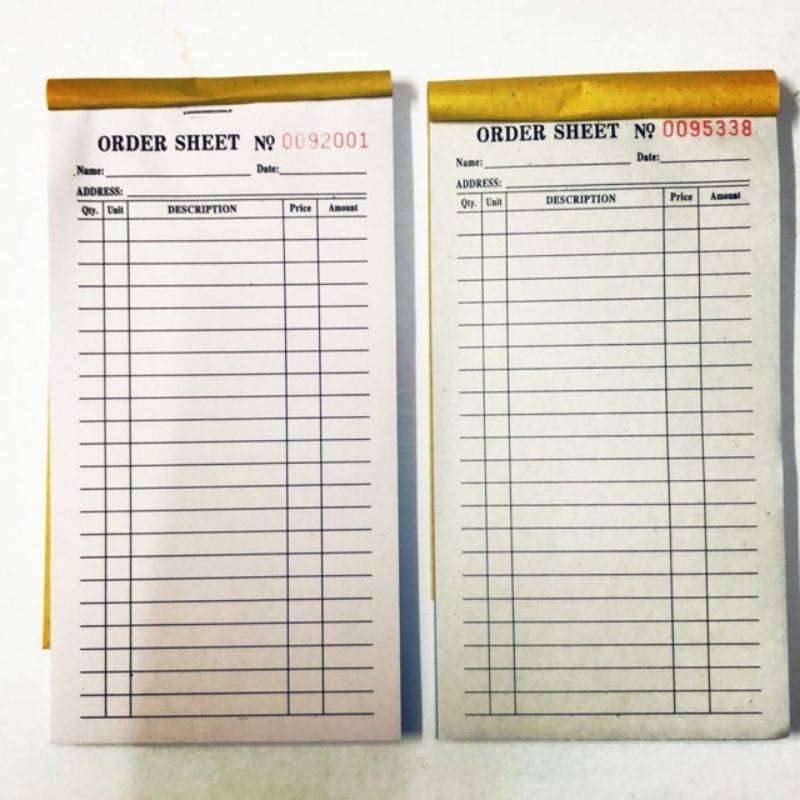 ORDER SHEET Nº 0092001
Name: Date:
ADDRESS:
Qty. Unit DESCRIPTION Price Amount
ORDER SHEET Nº 0095338
Name: Date:
ADDRESS:
Qty. Unit DESCRIPTION Price Amount